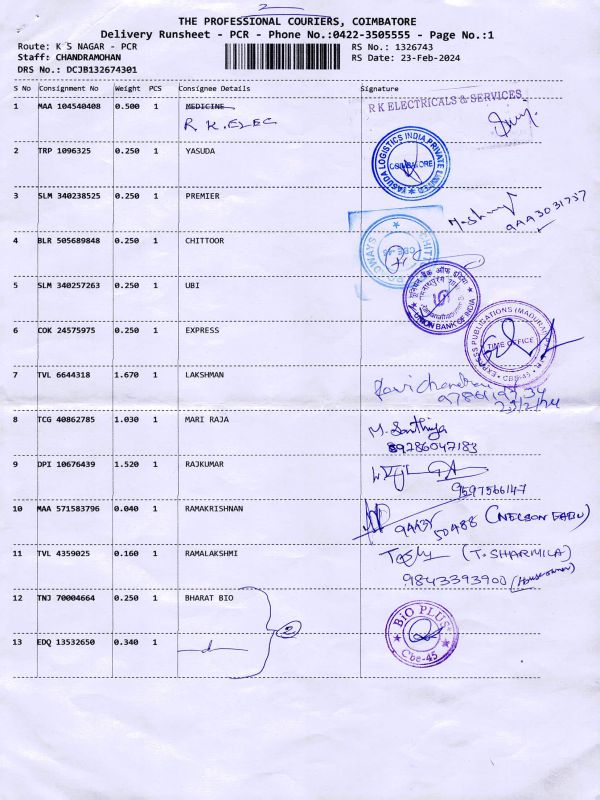 2
THE PROFESSIONAL COURIERS, COIMBATORE
Delivery Runsheet - PCR - Phone No.:0422-3505555 - Page No.:1
Route: K S NAGAR - PCR
RS No.: 1326743
Staff: CHANDRAMOHAN
RS Date: 23-Feb-2024
DRS No.: DCJB132674301
S No Consignment No Weight PCS Consignee Details Signature
1 MAA 104540408 0.500 1 MEDICINE
R K ELEC
R K ELECTRICALS & SERVICES
2 TRP 1096325 0.250 1 YASUDA
YASUDA LOGISTICS INDIA PRIVATE LIMITED
COIMBATORE
3 SLM 340238525 0.250 1 PREMIER
4 BLR 505689848 0.250 1 CHITTOOR
5 SLM 340257263 0.250 1 UBI
UNION BANK OF INDIA
6 COK 24575975 0.250 1 EXPRESS
EXPRESS PUBLICATIONS (MADURAI)
TIME OFFICE
CBE-45
7 TVL 6644318 1.670 1 LAKSHMAN
Ravichandran
23/2/24
8 TCG 40862785 1.030 1 MARI RAJA
M. Santhiya
89286047183
9 DPI 10676439 1.520 1 RAJKUMAR
9597566147
10 MAA 571583796 0.040 1 RAMAKRISHNAN
50488 (NELSON BABU)
11 TVL 4359025 0.160 1 RAMALAKSHMI
(T. SHARMILA)
9843393900 (House owner)
12 TNJ 70004664 0.250 1 BHARAT BIO
2
BIO PLUS
Cbe-45
13 EDQ 13532650 0.340 1